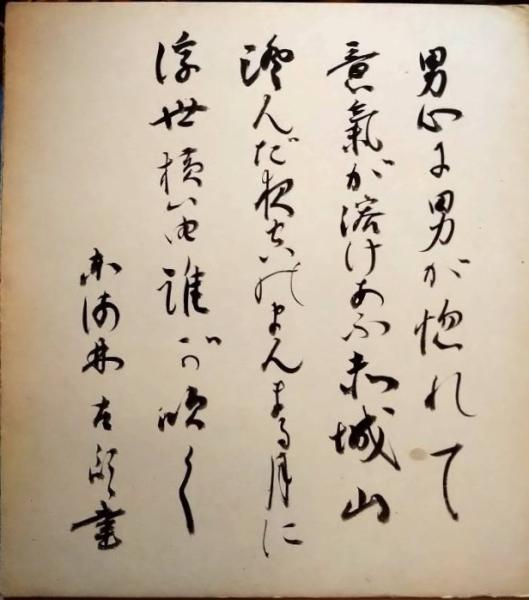 男心に男が惚れて
意氣が溶けあふ赤城山
澄んだ夜空のまんまる月に
浮世横笛誰が吹く
東海林太郎書